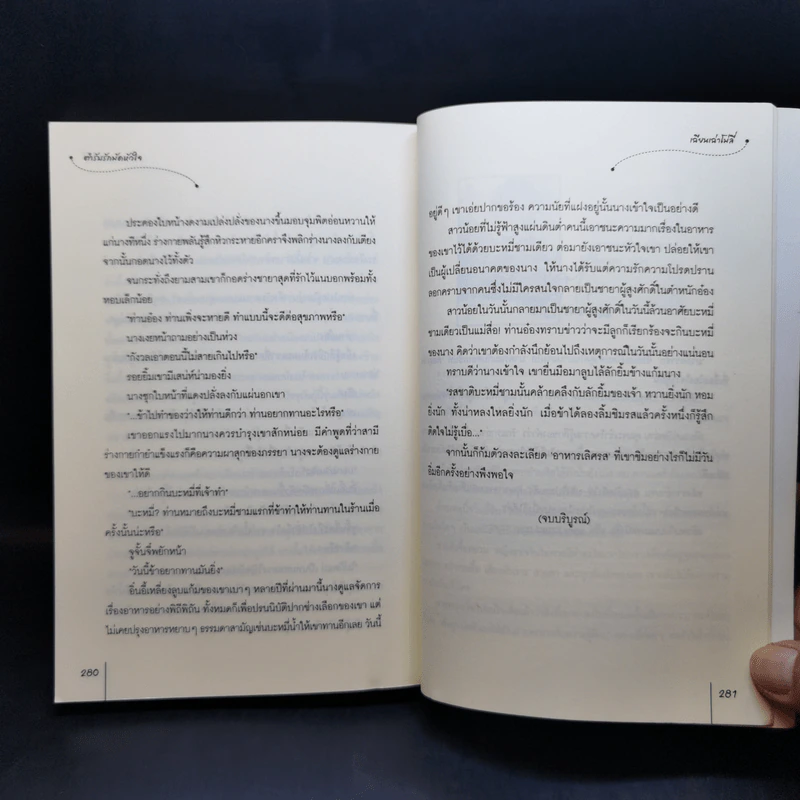 ตำรับรักมัดหัวใจ
ประคองใบหน้างดงามเปล่งปลั่งของนางขึ้นมอบจุมพิตอ่อนหวานให้
แก่นางทีหนึ่ง ร่างกายพลันรู้สึกหิวกระหายอีกคราจึงพลิกร่างนางลงกับเตียง
จากนั้นกอดนางไว้ทั้งตัว
จนกระทั่งถึงยามสามเขาก็กอดร่างชายาสุดที่รักไว้แนบอกพร้อมทั้ง
หอบเล็กน้อย
"ท่านอ๋อง ท่านเพิ่งจะหายดี ทำแบบนี้จะดีต่อสุขภาพหรือ"
นางเงยหน้าถามอย่างเป็นห่วง
"กังวลเอาตอนนี้ไม่สายเกินไปหรือ"
รอยยิ้มเขามีเสน่ห์น่ามองยิ่ง
นางซุกใบหน้าที่แดงปลั่งลงกับแผ่นอกเขา
"...ข้าไปทำของว่างให้ท่านดีกว่า ท่านอยากทานอะไรหรือ"
เขาออกแรงไปมากนางควรบำรุงเขาสักหน่อย มีคำพูดที่ว่าสามี
ร่างกายกำยำแข็งแรงก็คือความผาสุกของภรรยา นางจะต้องดูแลร่างกาย
ของเขาให้ดี
"...อยากกินบะหมี่ที่เจ้าทำ"
"บะหมี่? ท่านหมายถึงบะหมี่ชามแรกที่ข้าทำให้ท่านทานในร้านเมื่อ
ครั้งนั้นน่ะหรือ"
จูจั้นจี่พยักหน้า
"วันนี้ข้าอยากทานมันยิ่ง"
อิ่นอี้เหลี่ยงลูบแก้มของเขาเบาๆ หลายปีที่ผ่านมานี้นางดูแลจัดการ
เรื่องอาหารอย่างพิถีพิถัน ทั้งหมดก็เพื่อปรนนิบัติปากช่างเลือกของเขา แต่
ไม่เคยปรุงอาหารหยาบๆ ธรรมดาสามัญเช่นบะหมี่น้ำให้เขาทานอีกเลย วันนี้
280
เลียนเล่าโม่ลี่
อยู่ดีๆ เขาเอ่ยปากขอร้อง ความนัยที่แฝงอยู่นั้นนางเข้าใจเป็นอย่างดี
สาวน้อยที่ไม่รู้ฟ้าสูงแผ่นดินต่ำคนนี้เอาชนะความมากเรื่องในอาหาร
ของเขาไว้ได้ด้วยบะหมี่ชามเดียว ต่อมายังเอาชนะหัวใจเขา ปล่อยให้เขา
เป็นผู้เปลี่ยนอนาคตของนาง ให้นางได้รับแต่ความรักความโปรดปราน
ลอกคราบจากคนซึ่งไม่มีใครสนใจกลายเป็นชายาผู้สูงศักดิ์ในตำหนักอ๋อง
สาวน้อยในวันนั้นกลายมาเป็นชายาผู้สูงศักดิ์ในวันนี้ล้วนอาศัยบะหมี่
ชามเดียวเป็นแม่สื่อ! ท่านอ๋องทราบข่าวว่าจะมีลูกก็เรียกร้องจะกินบะหมี่
ของนาง คิดว่าเขาต้องกำลังนึกย้อนไปถึงเหตุการณ์ในวันนั้นอย่างแน่นอน
ทราบดีว่านางเข้าใจ เขายื่นมือมาลูบไล้ลักยิ้มข้างแก้มนาง
"รสชาติบะหมี่ชามนั้นคล้ายคลึงกับลักยิ้มของเจ้า หวานยิ่งนัก หอม
ยิ่งนัก ทั้งน่าหลงใหลยิ่งนัก เมื่อข้าได้ลองลิ้มชิมรสแล้วครั้งหนึ่งก็รู้สึก
ติดใจไม่รู้เบื่อ..."
จากนั้นก็ก้มตัวลงละเลียด 'อาหารเลิศรส' ที่เขาชิมอย่างไรก็ไม่มีวัน
อิ่มอีกครั้งอย่างพึงพอใจ
(จบบริบูรณ์)
281